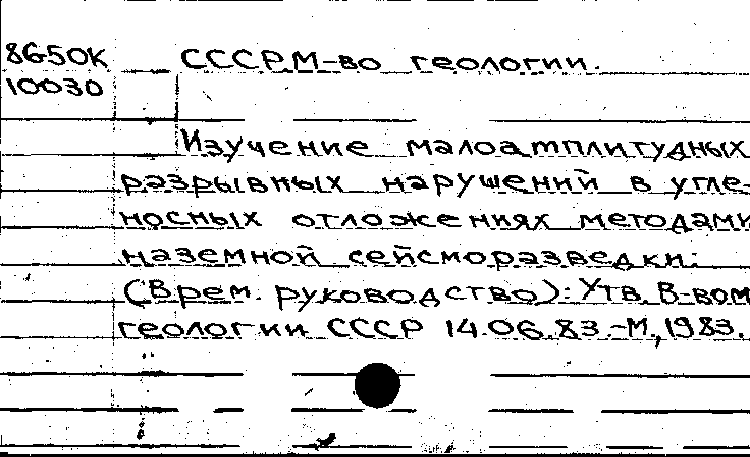 8G50K СССР.М-во геологии.
10030
Изучение малоамплитудных
разрывных нарушений в угле-
носных отложениях методами
наземной сейсморазведки:
(Врем. руководство): Утв. В-вом
геологии СССР 14.06.83.-М.,1983.